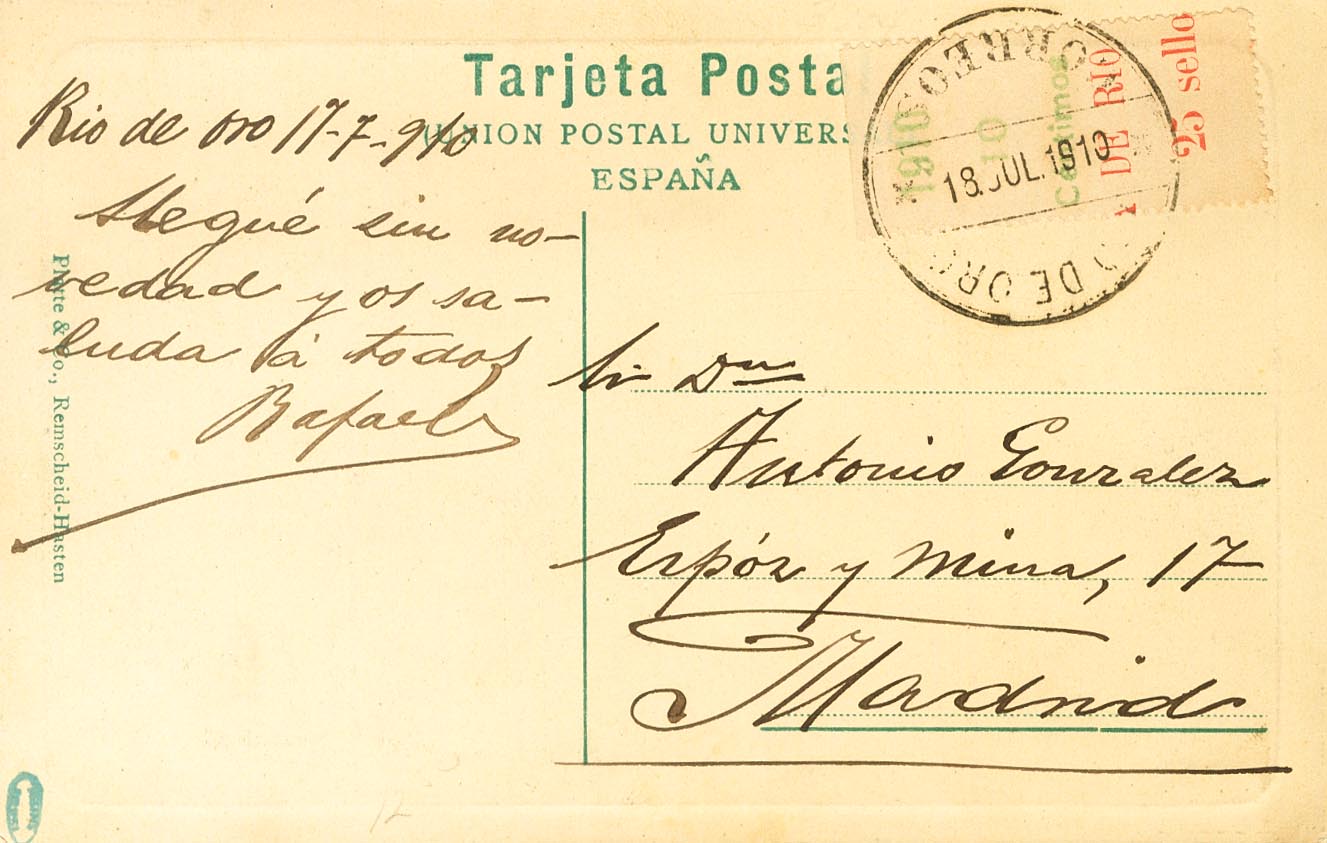 Tarjeta Posta
UNION POSTAL UNIVERS
ESPAÑA
Rio de oro 17-7-910
Llegué sin no-
vedad y os sa-
luda á todos
Rafael
Sr Dn
Antonio Gonzalez
Espóz y Mina, 17
Madrid
CORREOS
18.JUL.1910
O DE ORO
1910
10
Céntimos
A DE RIO
25 sello
& Co., Remscheid-Hasten